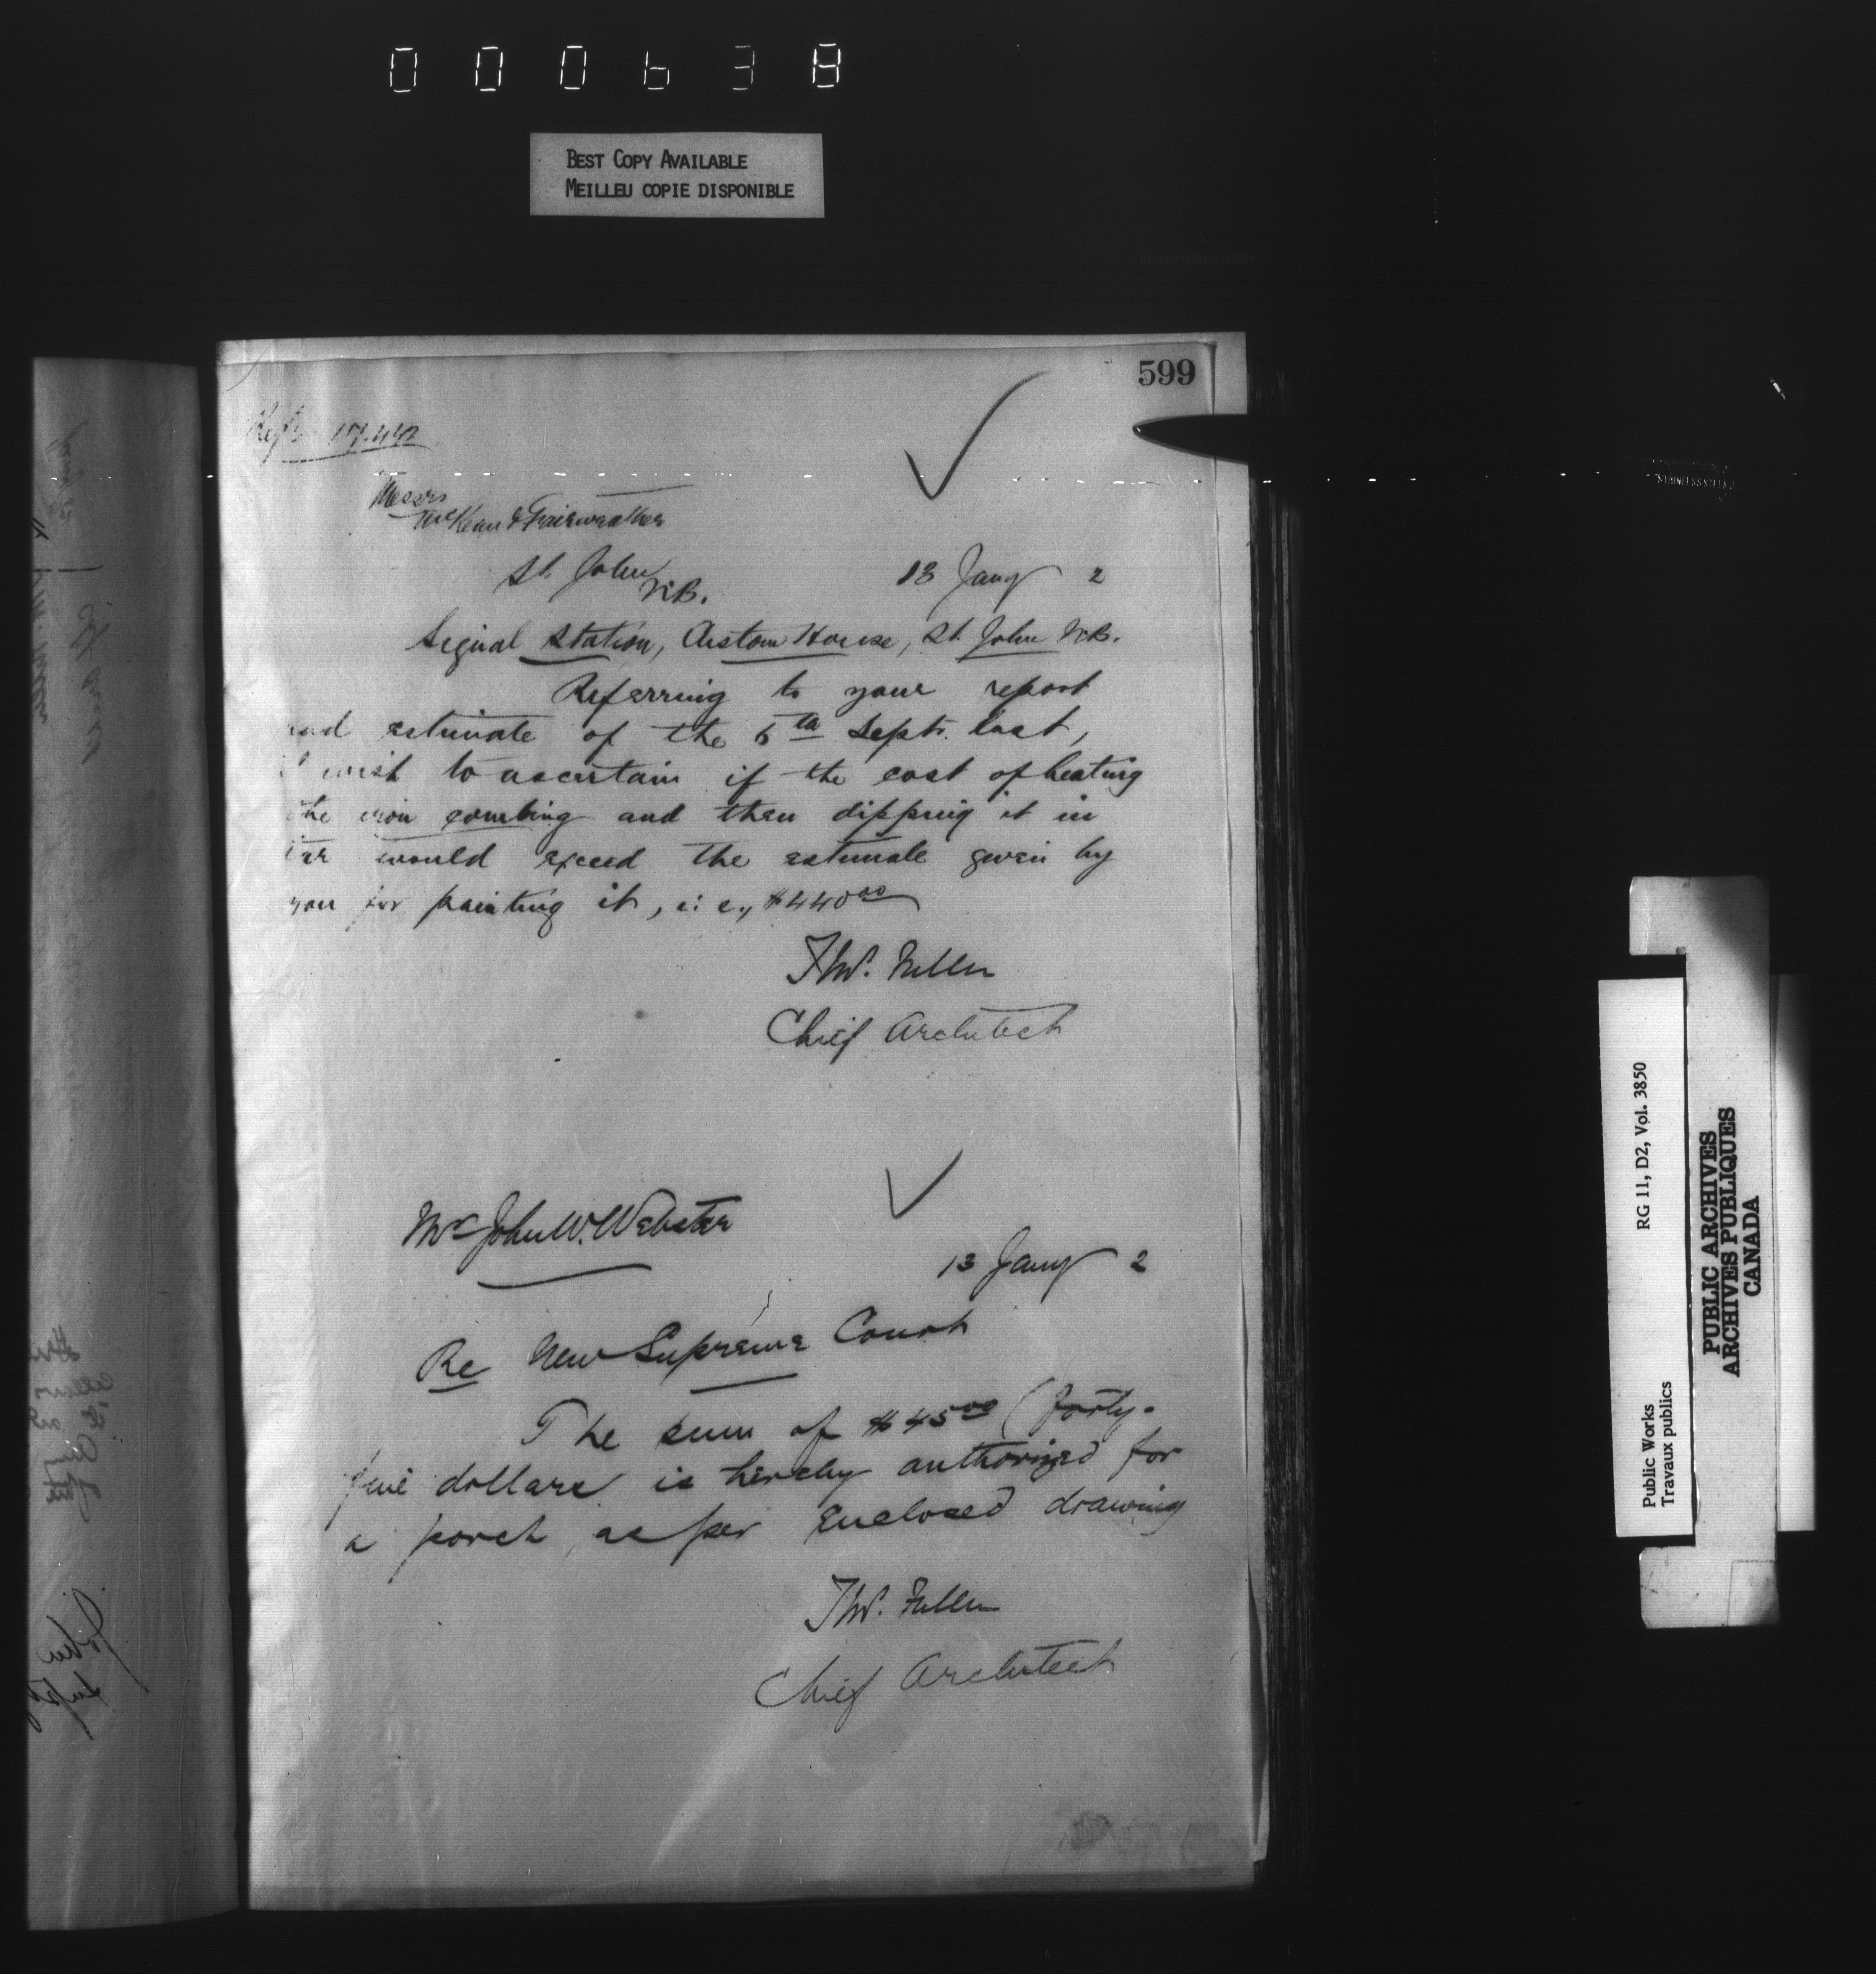 000638
BEST COPY AVAILABLE
MEILLEU COPIE DISPONIBLE
599
Messrs
McKean & Fairweather
St. John
N.B.
13 Jany 2
Signal Station, Custom House, St. John N.B.
Referring to your report
and estimate of the 5th Septr. last,
I wish to ascertain if the cost of heating
the iron combing and then dipping it in
tar would exceed the estimate given by
you for painting it, i. e., $440.00
Thos. Fuller
Chief Architect
Mr John W. Webster
13 Jany 2
Re New Supreme Court
The sum of $45.00 (forty-
five dollars is hereby authorized for
a porch, as per enclosed drawing
Thos. Fuller
Chief Architect
Public Works
Travaux publics
RG 11, D2, Vol. 3850
PUBLIC ARCHIVES
ARCHIVES PUBLIQUES
CANADA